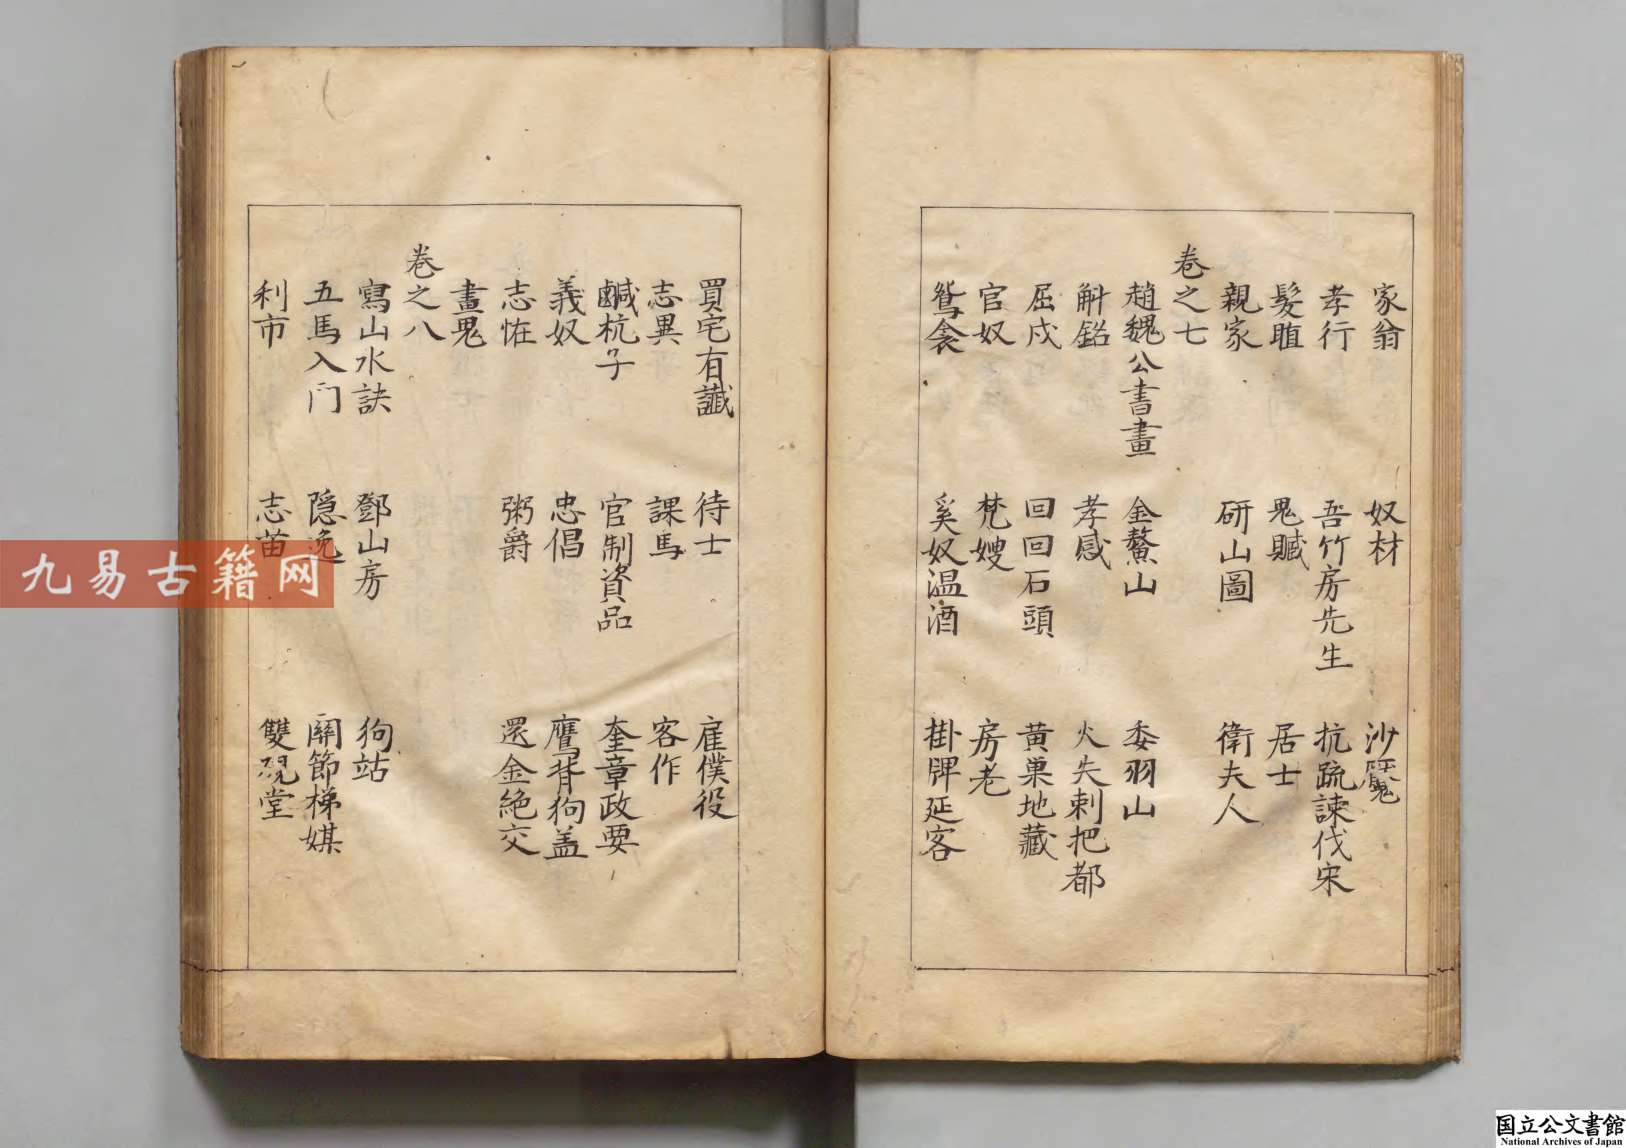 家翁　奴材　沙魘
孝行　吾竹房先生　抗疏諫伐宋
髮𥄂　鬼贓　居士
親家　研山圖　衛夫人
卷之七
趙魏公書畫　金鰲山　委羽山
斛銘　孝感　火失剌把都
屈戍　回回石頭　黃巢地藏
官奴　梵嫂　房老
鴛衾　奚奴温酒　掛牌延客
買宅有讖　待士　雇僕役
志異　課馬　客作
鹹杭子　官制資品　奎章政要
義奴　忠倡　鷹背狗盖
志恠　粥爵　還金絶交
畫鬼
卷之八
寫山水訣　鄧山房　狗站
五馬入門　隱逸　關節梯媒
利市　志苗　雙硯堂
九易古籍网
国立公文書館
National Archives of Japan